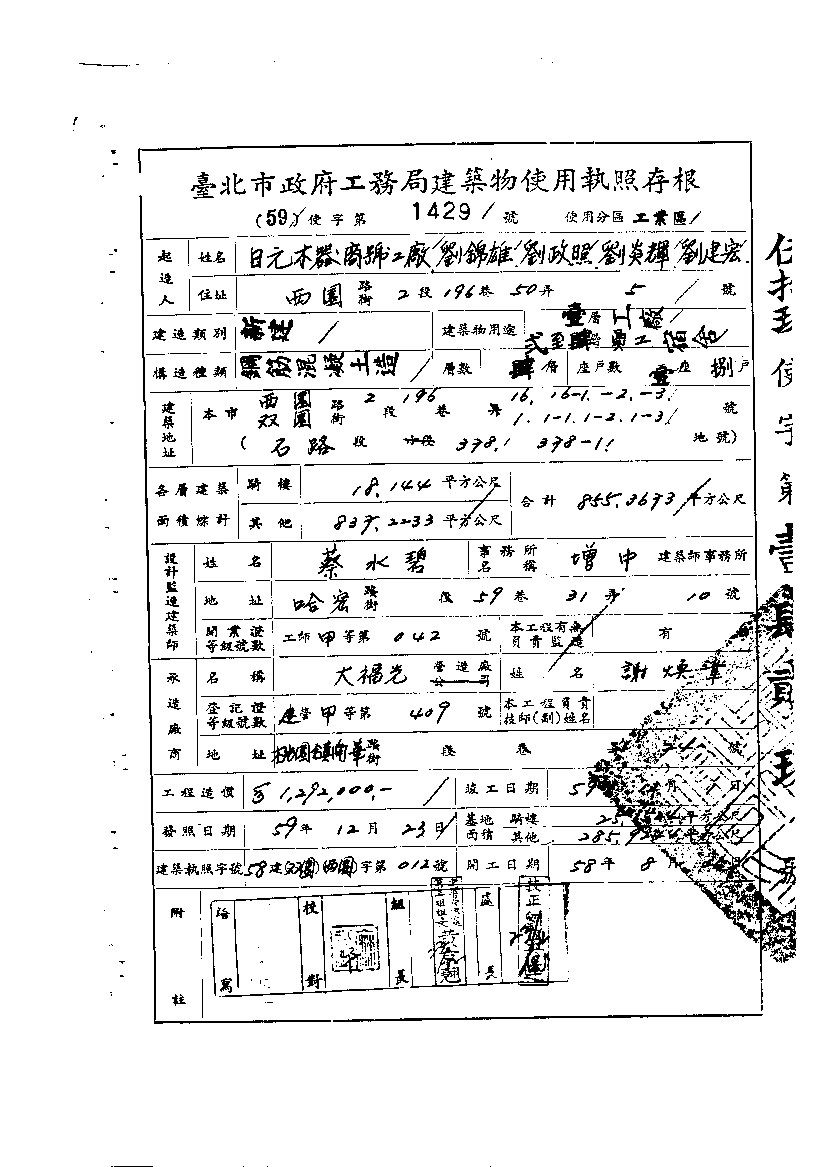 臺北市政府工務局建築物使用執照存根
(59)使字第 1429 號 使用分區 工業區
起造人 姓名 日元木器商號工廠 劉錦雄 劉政照 劉炎輝 劉建宏
住址 西園 路街 2段 196巷 50弄 5 號
建造類別 新建 建築物用途 壹層工廠 貳至肆層員工宿舍
構造種類 鋼筋混凝土造 層數 肆層 座戶數 壹座 捌戶
建築地址 本市 西園 双園 路街 2段 196巷 弄 16, 16-1. -2. -3 1. 1-1. 1-2. 1-3 號
(石路段 小段 378, 378-1 地號)
各層建築面積綜計 騎樓 18.144 平方公尺 合計 855.3673 平方公尺
其他 837.2233 平方公尺
設計監造建築師 姓名 蔡水碧 事務所名稱 增中 建築師事務所
地址 哈密 路街 段 59巷 31弄 10號
開業證等級號數 工師甲等第 042 號 本工程有無負責監造 有
承造廠商 名稱 大福光 營造廠公司 姓名 謝煥章
登記證等級號數 建營甲等第 409 號 本工程負責技師(副)姓名
地址 桃園鎮南華 路街 段 巷 號
工程造價 1,292,000.- 竣工日期 59 日
發照日期 59年 12月 23日 基地面積 騎樓 平方公尺
其他 平方公尺
建築執照字號 58建(双園)(西園)字第 012 號 開工日期 58年 8月 日
附註 繕寫 校對 組長 處長
使字第壹肆貳玖號